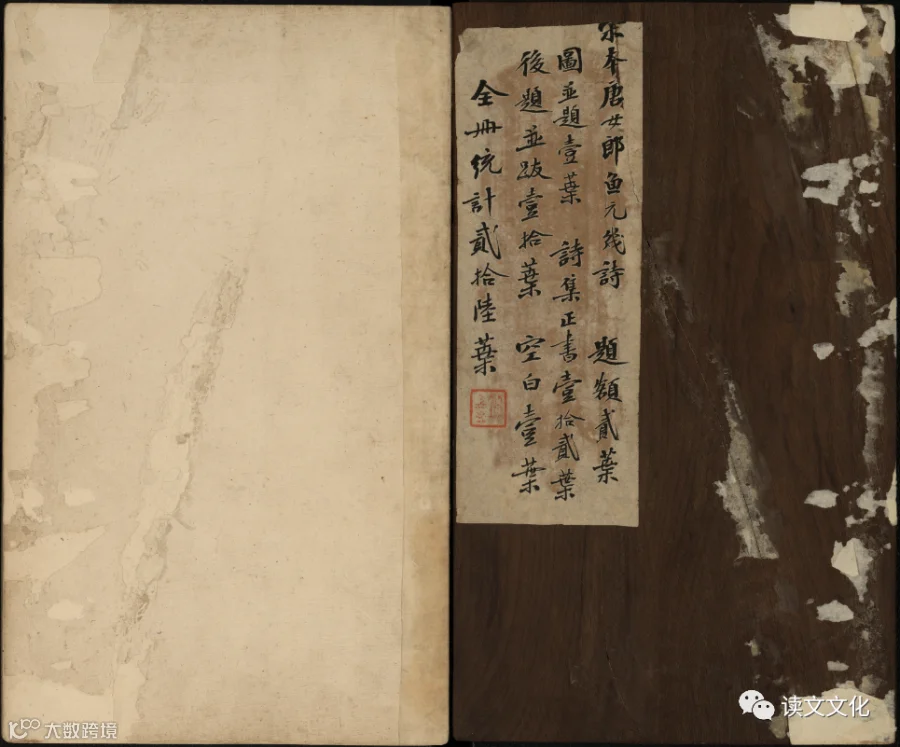 宋本唐女郎魚元機詩 題額貳葉
圖並題壹葉 詩集正書壹拾貳葉
後題並跋壹拾葉 空白壹葉
全冊統計貳拾陸葉
读文文化
大数跨境